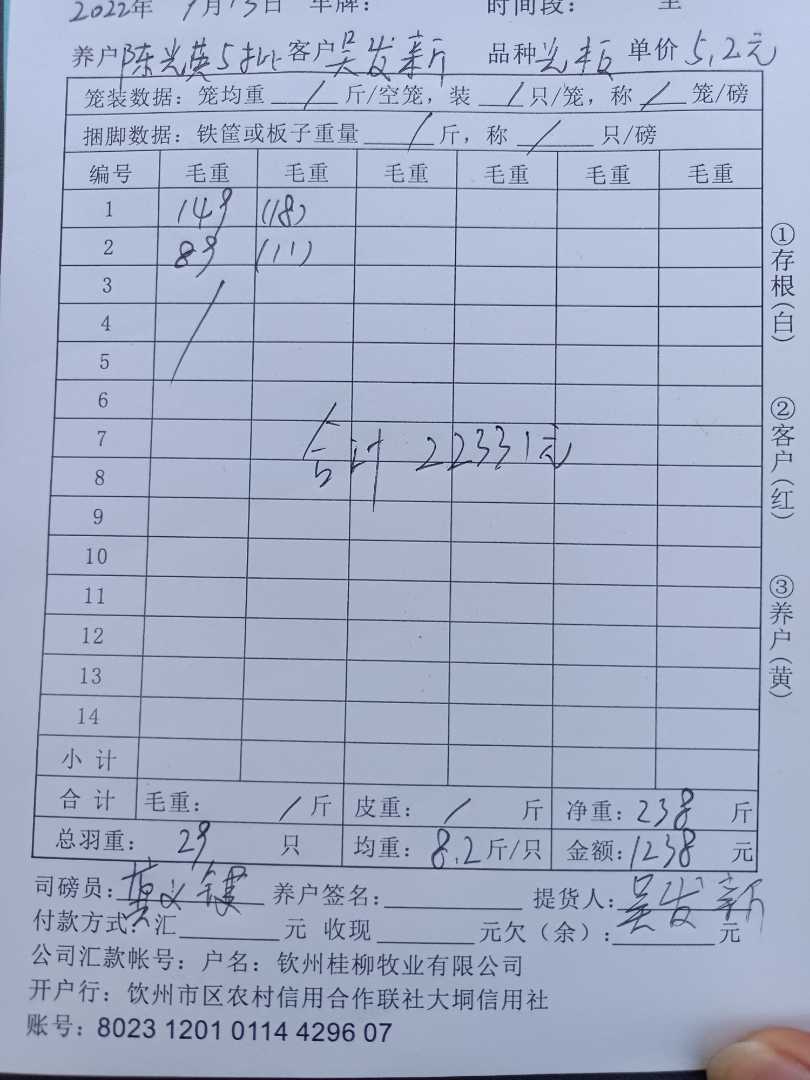 2022年 9月13日 车牌： 时间段： 至
养户 陈光英5批 客户 吴发新 品种 光板 单价 5.2元
笼装数据：笼均重 / 斤/空笼，装 / 只/笼，称 / 笼/磅
捆脚数据：铁筐或板子重量 / 斤，称 / 只/磅
编号 毛重 毛重 毛重 毛重 毛重 毛重
1 149 (18)
2 89 (11)
3 /
4
5
6
7
合计 22331元
8
9
10
11
12
13
14
小计
合计 毛重： / 斤 皮重： / 斤 净重：238 斤
总羽重： 29 只 均重：8.2斤/只 金额：1238 元
司磅员： 养户签名： 提货人：吴发新
付款方式：汇 元 收现 元欠（余）： 元
公司汇款帐号：户名：钦州桂柳牧业有限公司
开户行：饮州市区农村信用合作联社大垌信用社
账号：8023 1201 0114 4296 07
①存根(白)
②客户(红)
③养户(黄)